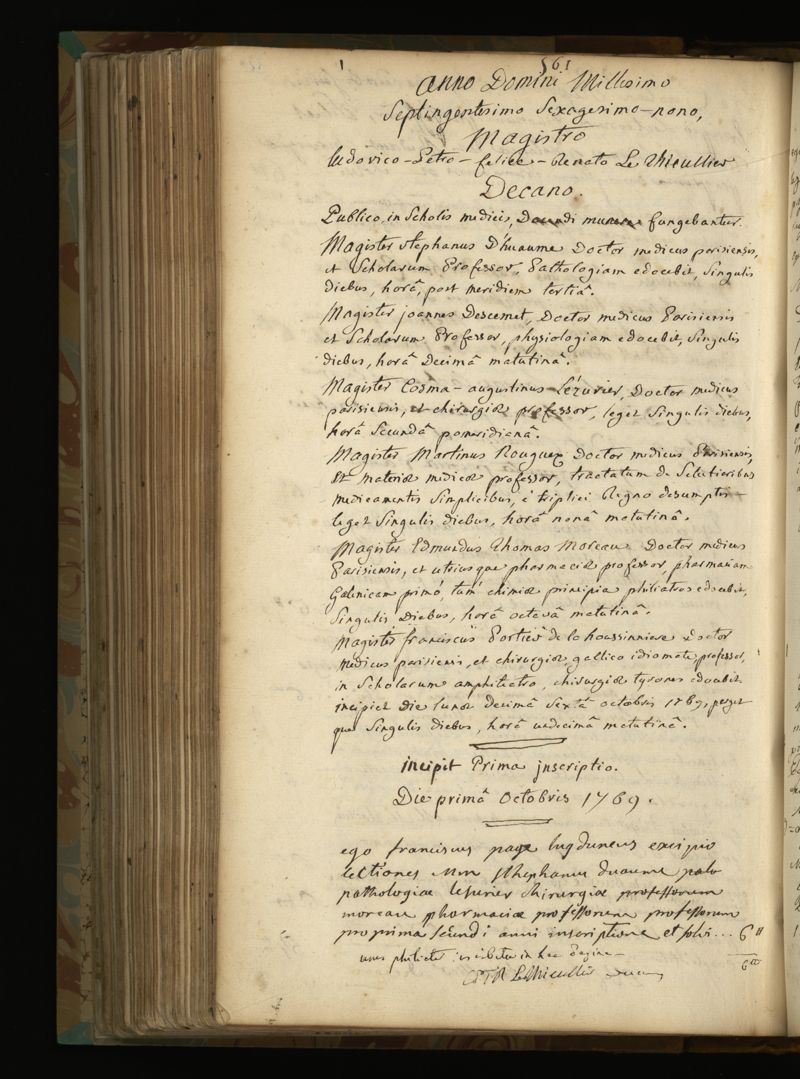 561
anno Domini Millesimo
Septingentesimo Sexagesimo-nono,
Magistro
ludovico-Petro-felice-Renato Le Thieullier
Decano.
Publico, in Scholis medicis, Docendi munere fungebantur.
Magister stephanus D'huaume Doctor medicus parisiensis,
et Scholarum Professor, Pathologiam edocebit, Singulis
diebus, horâ, post meridiem tertiâ.
Magister joannes Descemet, Doctor medicus Parisiensis
et Scholarum Professor, physiologiam edocebit, Singulis
diebus, horâ Decimâ matutinâ.
Magister Cosma-augustinus Lézurier, Doctor medicus
parisiensis, et chirurgiæ professor, leget Singulis diebus,
horâ Secundâ pomeridianâ.
Magister Martinus Nouguez Doctor medicus Parisiensis,
et materiæ medicæ professor, tractatum de Selectioribus
medicamentis Simplicibus, è triplici Regno desumptis
leget Singulis diebus, horâ nonâ matutinâ.
Magister Edmundus Thomas Moreau Doctor medicus
Parisiensis, et utriusque pharmaciæ professor, pharmaciam
Galenicam primò, tum chimiæ principia philiatros edocebit,
Singulis Diebus, horâ octavâ matutinâ.
Magister franciscus Portier de la houssinniere Doctor
medicus parisiensis, et chirurgiæ, gallico idiomate professor,
in Scholarum amphiteatro, chirurgiæ tyrones edocebit
incipiet Die lunæ Decimâ Sextâ octobris 1769, perget
que Singulis diebus, horâ undecimâ matutinâ.
incipit Prima inscriptio.
Die primâ Octobris 1769.
ego franciscus page lugduneus excipio
lectiones Mrm sthephanus duaume
pathologiæ lesurier chirurgiæ professorum
moreau pharmaciæ professorum professorum
pro prima secundi anni inscriptione et solvi... 6 tt
unus philiater inscribitur in hac pagina
6 tt
LeThieullier